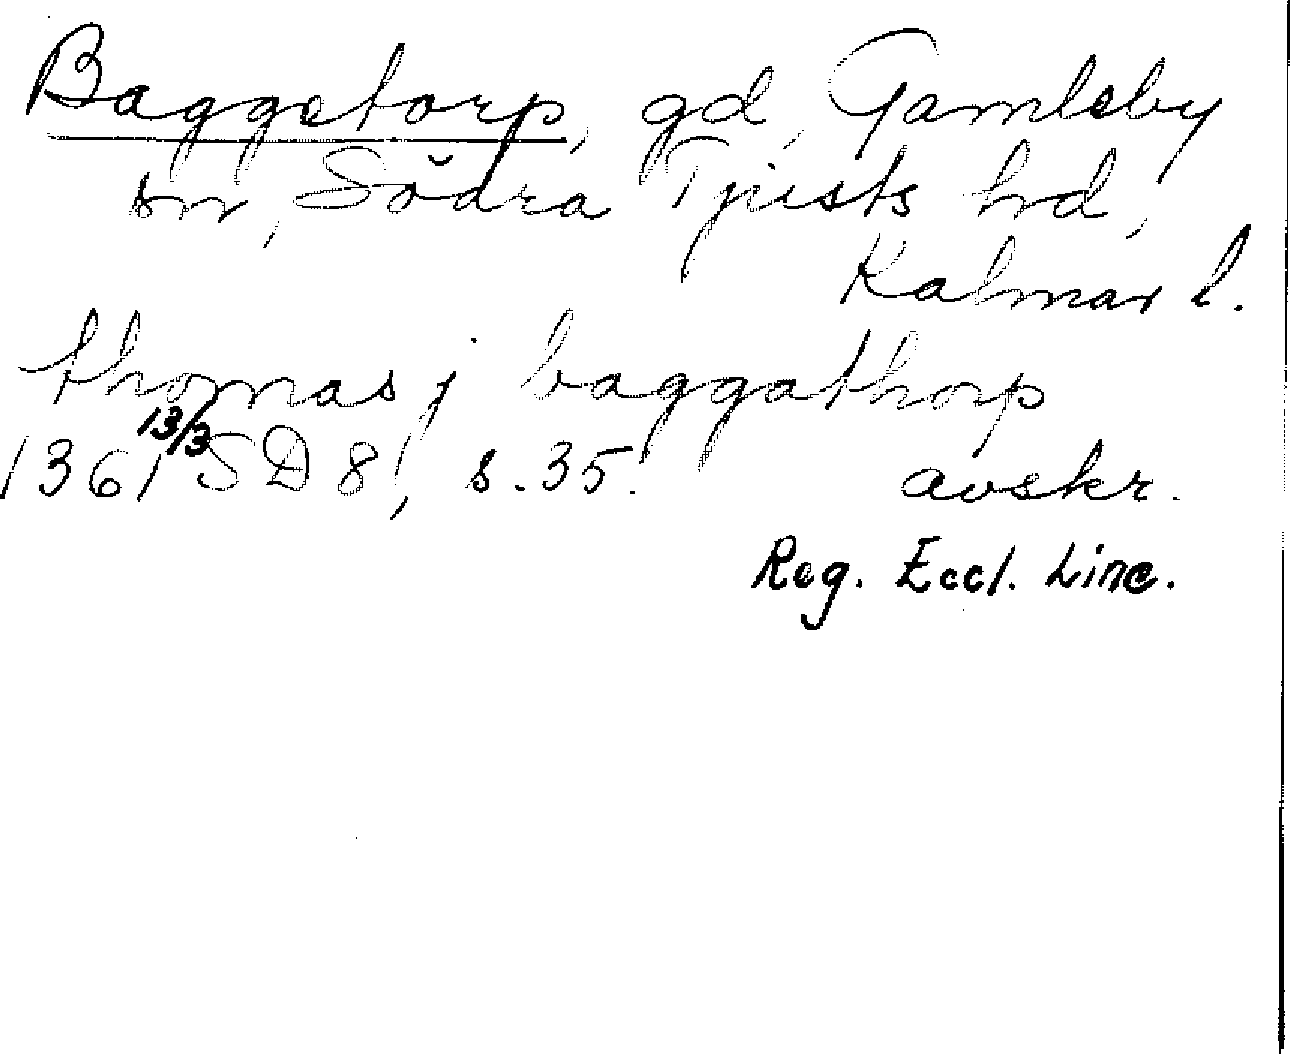 Baggetorp, gd, Gamleby
sn, Södra Tjusts hd,
Kalmar l.
thomas j baggathorp
1361 13/3 SD 8, s. 35. avskr.
Reg. Eccl. Linc.